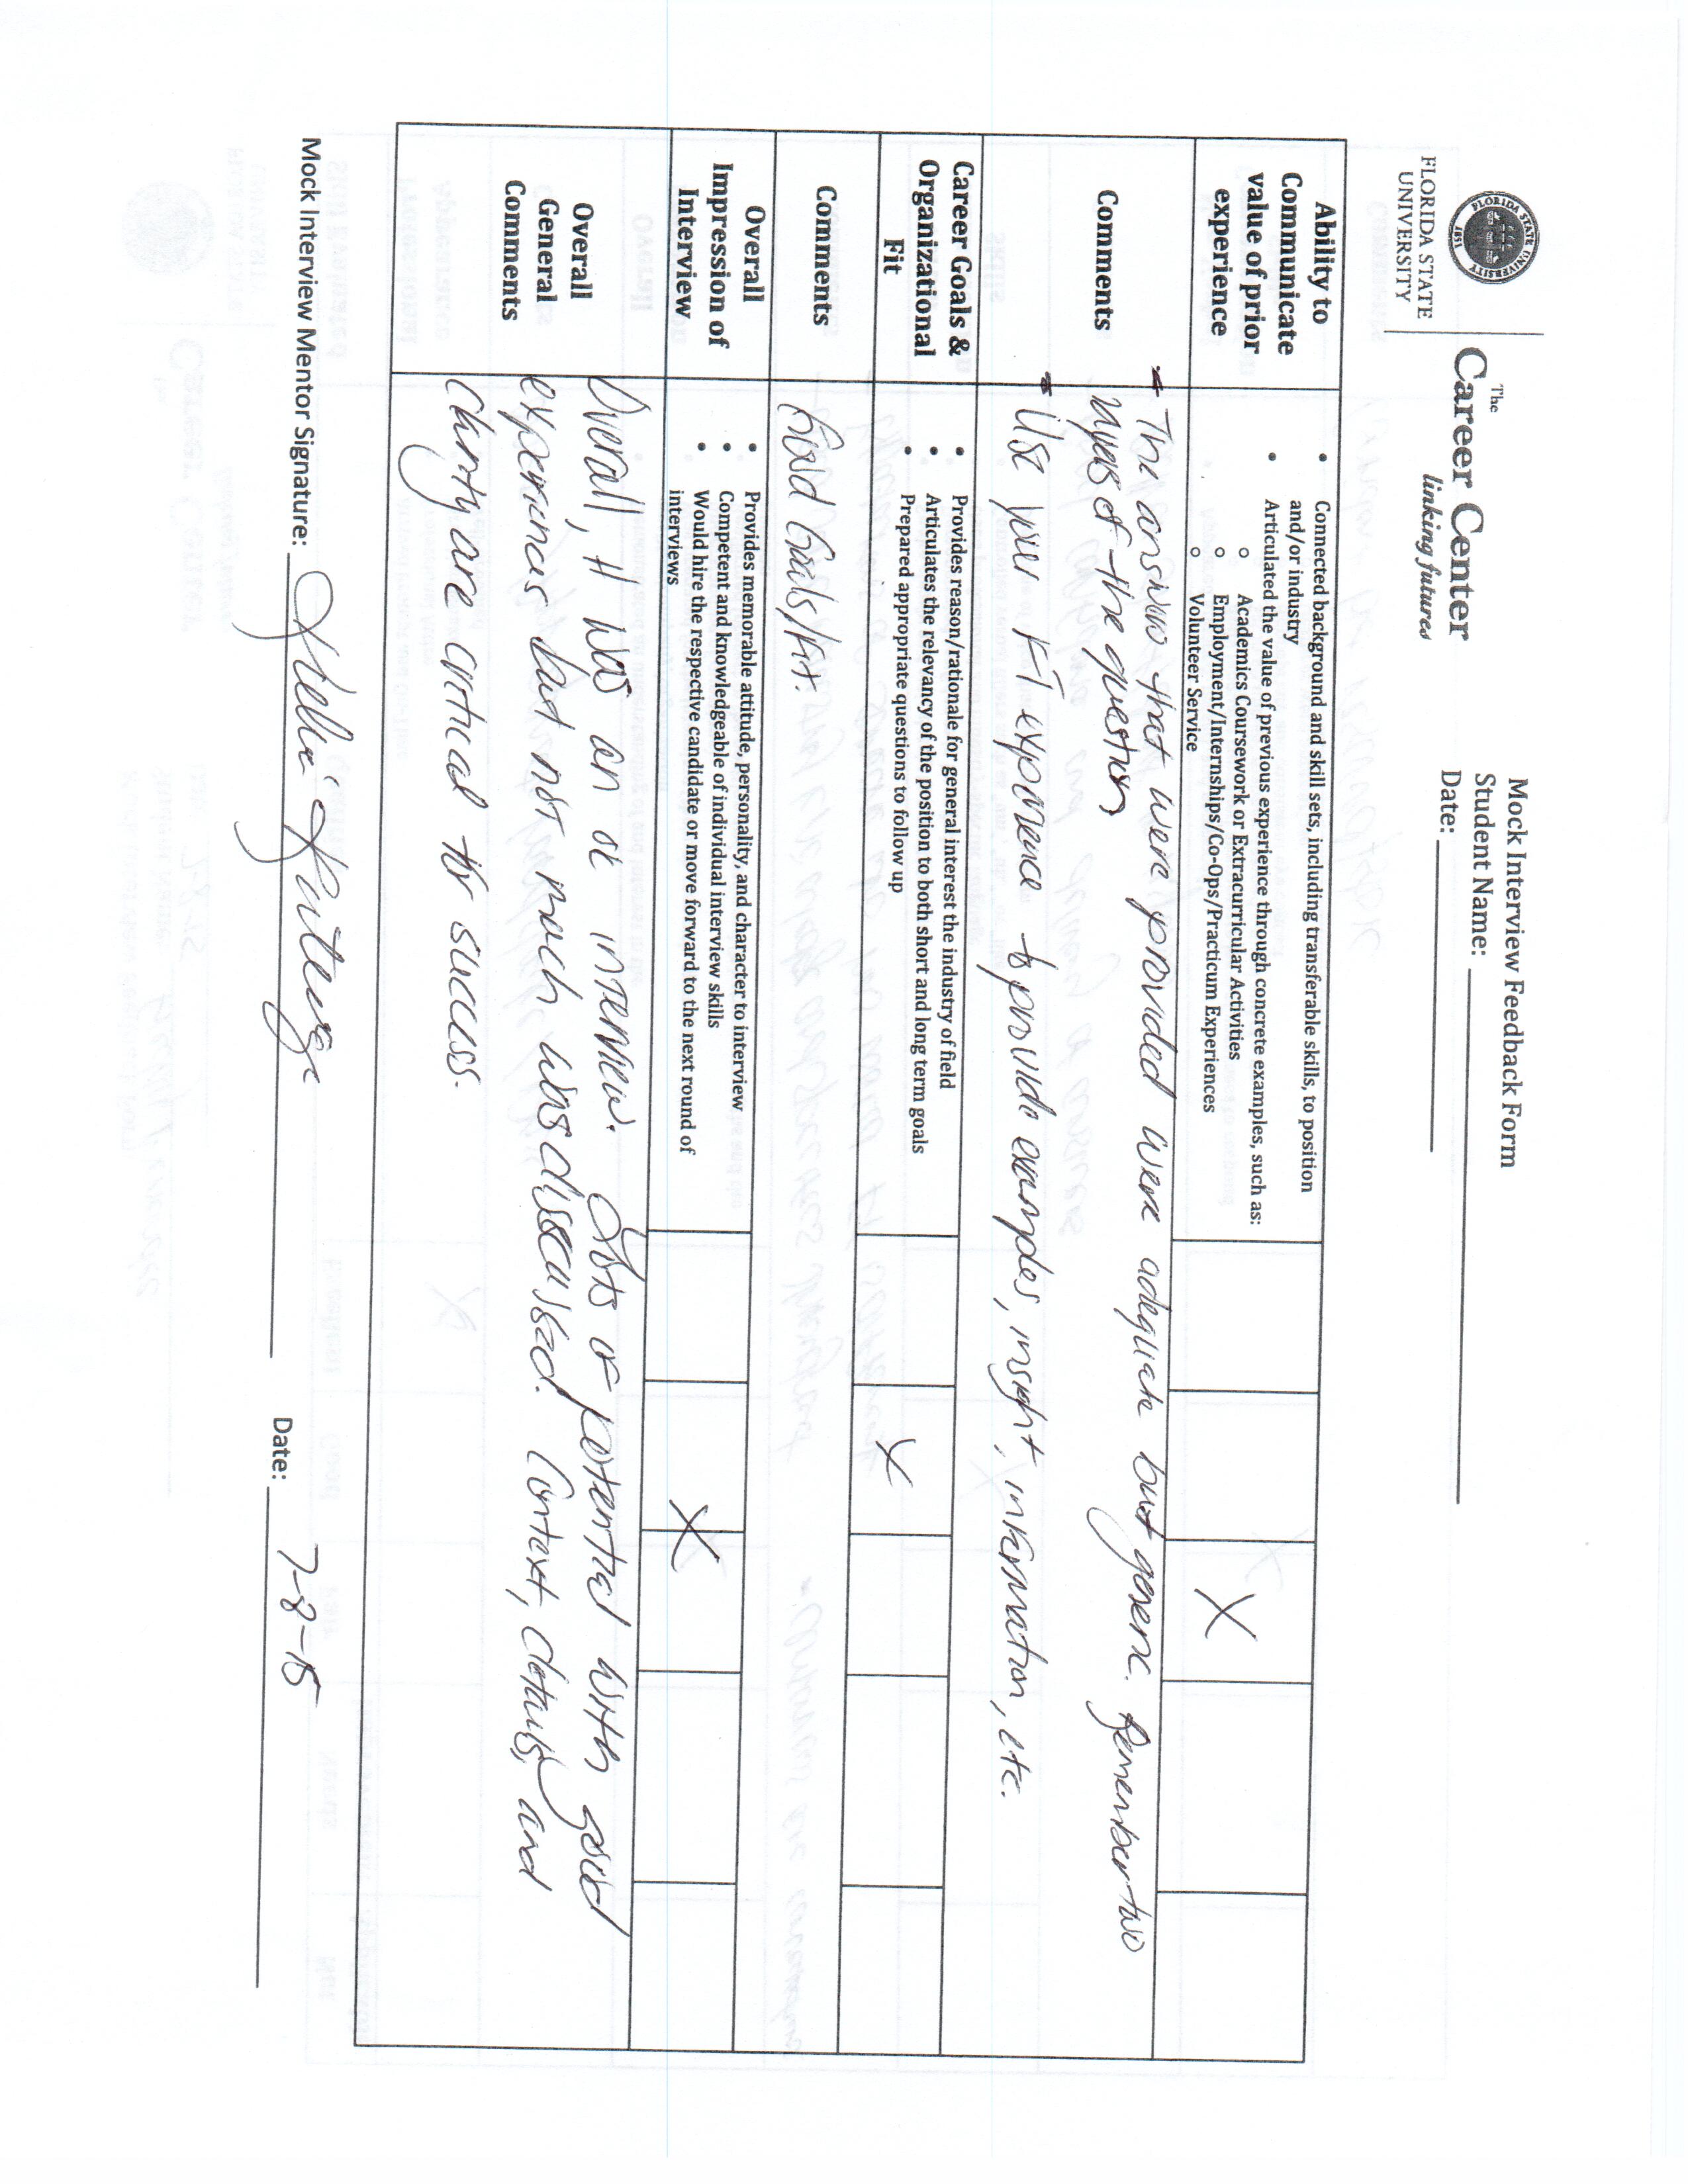 FLORIDA STATE UNIVERSITY
1851
FLORIDA STATE
UNIVERSITY
The
Career Center
linking futures
Mock Interview Feedback Form
Student Name:
Date:
Ability to
Communicate
value of prior
experience
• Connected background and skill sets, including transferable skills, to position
and/or industry
• Articulated the value of previous experience through concrete examples, such as:
o Academics Coursework or Extracurricular Activities
o Employment/Internships/Co-Ops/Practicum Experiences
o Volunteer Service
X
Comments
The answers that were provided were adequate but generic. Remember two
types of the question
Use your FT experience to provide examples, insight, information, etc.
Career Goals &
Organizational
Fit
• Provides reason/rationale for general interest the industry of field
• Articulates the relevancy of the position to both short and long term goals
• Prepared appropriate questions to follow up
X
Comments
Good Goals/Fit.
Overall
Impression of
Interview
• Provides memorable attitude, personality, and character to interview
• Competent and knowledgeable of individual interview skills
• Would hire the respective candidate or move forward to the next round of
interviews
X
Overall
General
Comments
Overall, it was an ok interview. Lots of potential with good
experiences but not much was discussed. Context, details, and
clarity are critical for success.
Mock Interview Mentor Signature:
Date: 7-8-15